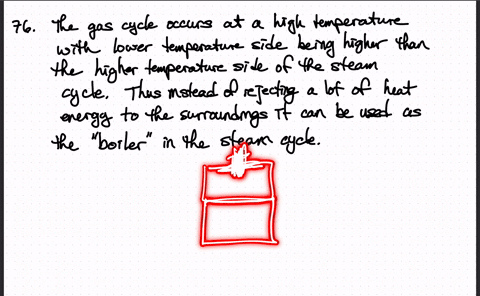 76. The gas cycle occurs at a high temperature
with lower temperature side being higher than
the higher temperature side of the steam
cycle. Thus instead of rejecting a lot of heat
energy to the surroundings it can be used as
the "boiler" in the steam cycle.